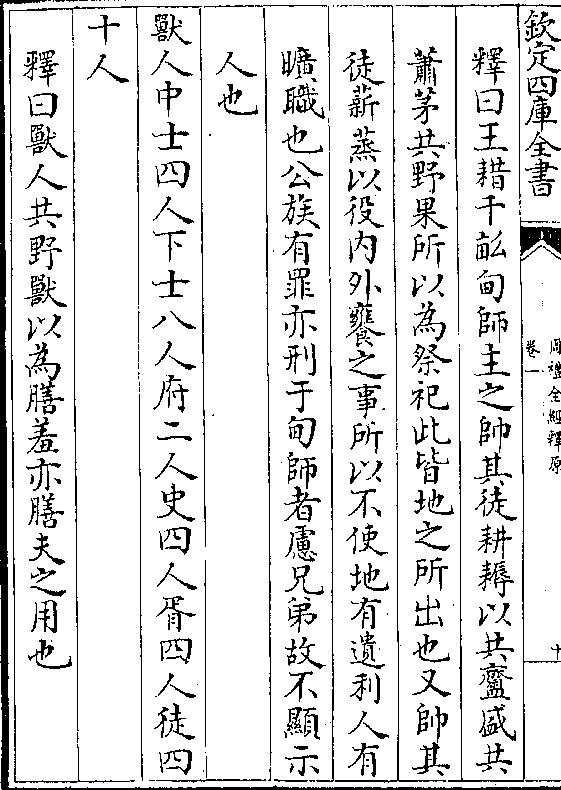 欽定四庫全書
周禮全經釋原
卷一
十
釋曰王耤千畝甸師主之帥其徒耕耨以共齍盛共
蕭茅共野果所以為祭祀此皆地之所出也又帥其
徒薪蒸以役内外饔之事所以不使地有遺利人有
曠職也公族有罪亦刑于甸師者慮兄弟故不顯示
人也
獸人中士四人下士八人府二人史四人胥四人徒四
十人
釋曰獸人共野獸以為膳羞亦膳夫之用也